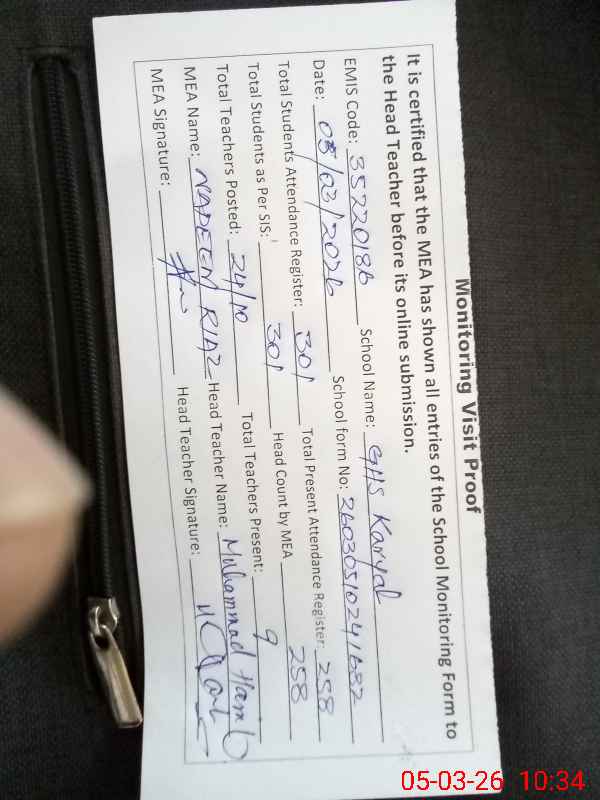 Monitoring Visit Proof
It is certified that the MEA has shown all entries of the School Monitoring Form to
the Head Teacher before its online submission.
EMIS Code: 35220186 School Name: GHS Karyal
Date: 05/03/2026 School form No: 260305102241682
Total Students Attendance Register: 301 Total Present Attendance Register: 258
Total Students as Per SIS: 301 Head Count by MEA 258
Total Teachers Posted: 24/10 Total Teachers Present: 9
MEA Name: NADEEM RIAZ Head Teacher Name: Muhammad
MEA Signature: Head Teacher Signature:
05-03-26 10:34